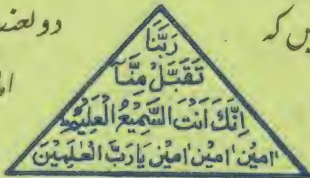 یں کہ
دولھند
رَبَّنَا
تَقَبَّلْ مِنَّآ
اِنَّكَ اَنْتَ السَّمِيْعُ الْعَلِيْمُ
اٰمِيْن اٰمِيْن اٰمِيْن يَارَبَّ الْعٰلَمِيْنَ